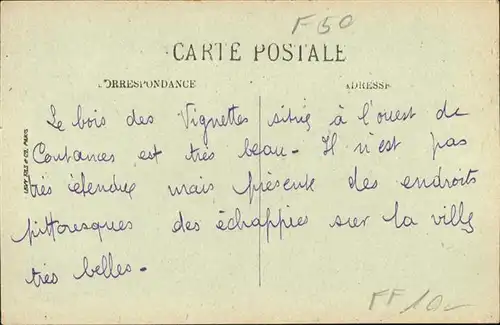 F50
CARTE POSTALE
CORRESPONDANCE
ADRESSE
Le bois des Vignettes situé à l'ouest de
Coutances est très beau. Il n'est pas
très étendu mais présente des endroits
pittoresques des échappées sur la ville
très belles.
LEVY FILS & Cie, PARIS
FF10